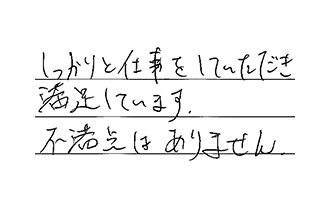 しっかりと仕事をしていただき
満足しています.
不満点はありません.